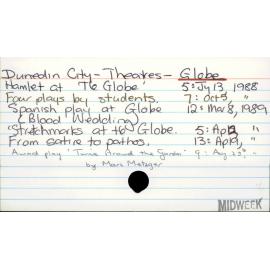 Dunedin City - Theatres - Globe
Hamlet at 'The Globe' 5: Jy 13, 1988
Four plays by students. 7: Oct 5, "
Spanish play at Globe 12: Mar 8, 1989
(Blood Wedding)
'Stretchmarks at the Globe. 5: Ap12, "
From satire to pathos. 13: Ap19, "
Award play 'Turns Around the Garden' 9: Aug 23, "
by Marc Metzger
MIDWEEK